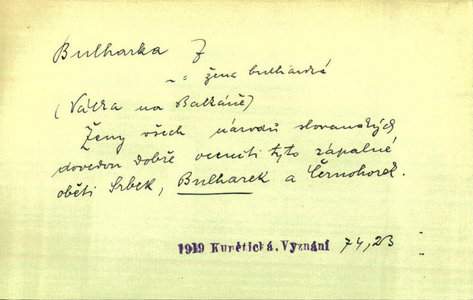 Bulharka Ž
~ = žena bulharská
(Válka na Balkáně)
Ženy všech národů slovanských
dovedou dobře oceniti tyto zápalné
oběti Srbek, Bulharek a Černohorek.
1919 Kunětická, Vyznání 74,23